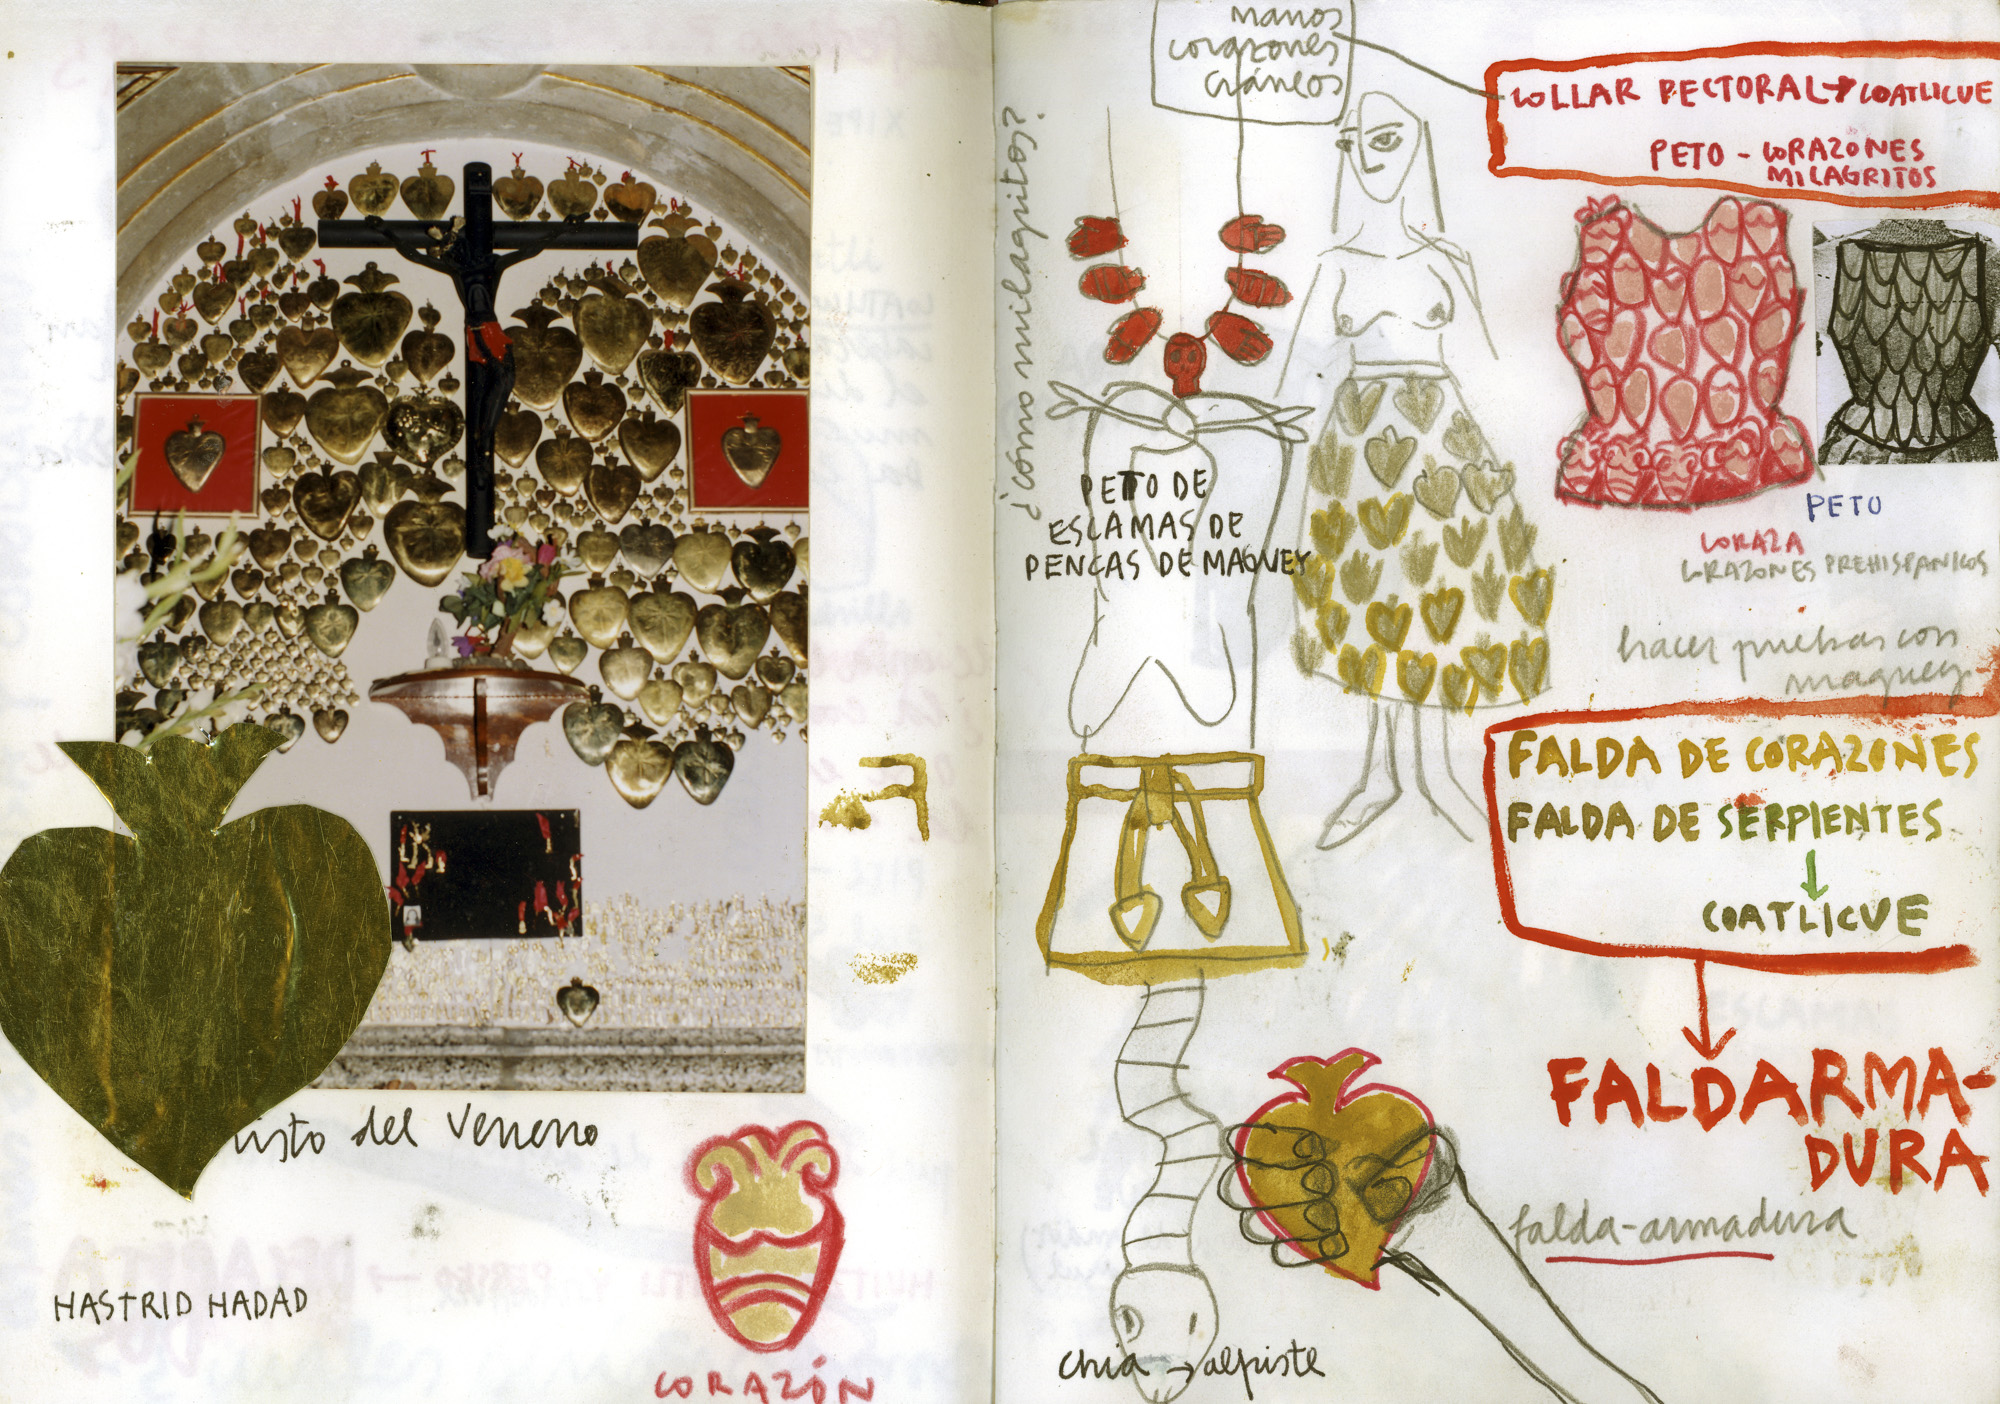 isto del Veneno
HASTRID HADAD
CORAZÓN
manos
corazones
cráneos
¿cómo milagritos?
COLLAR PECTORAL → COATLICUE
PETO - CORAZONES
MILAGRITOS
PETO DE
ESCAMAS DE
PENCAS DE MAGUEY
PETO
CORAZA
CORAZONES PREHISPANICOS
hacer pruebas con
maguey
FALDA DE CORAZONES
FALDA DE SERPIENTES
COATLICUE
FALDARMA-
DURA
falda-armadura
chia → alpiste